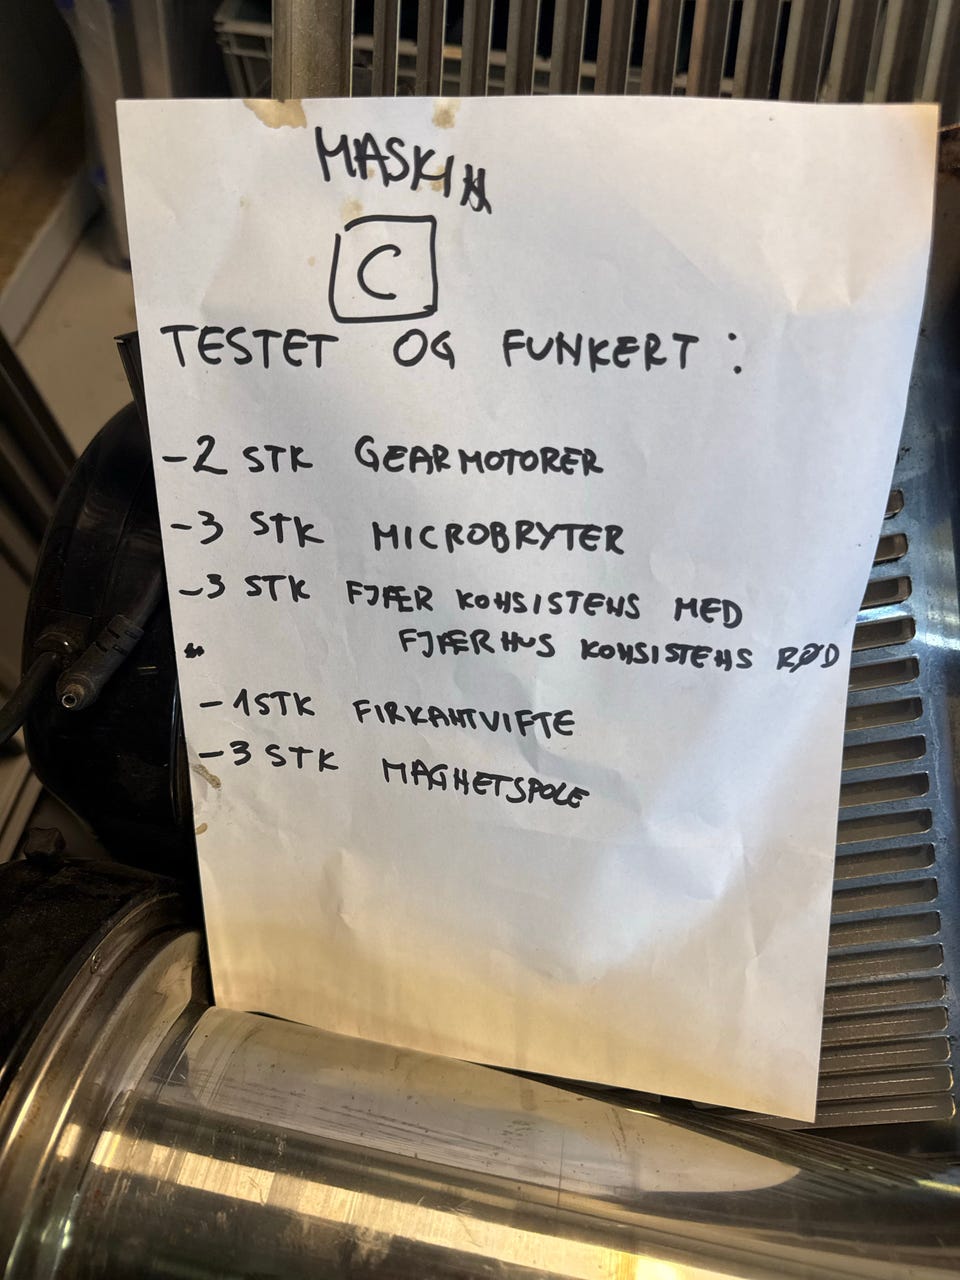 MASKIN
C
TESTET OG FUNKERT:
-2 STK GEARMOTORER
-3 STK MICROBRYTER
-3 STK FJÆR KONSISTENS MED
FJÆRHUS KONSISTENS RØD
-1STK FIRKANTVIFTE
-3 STK MAGNETSPOLE